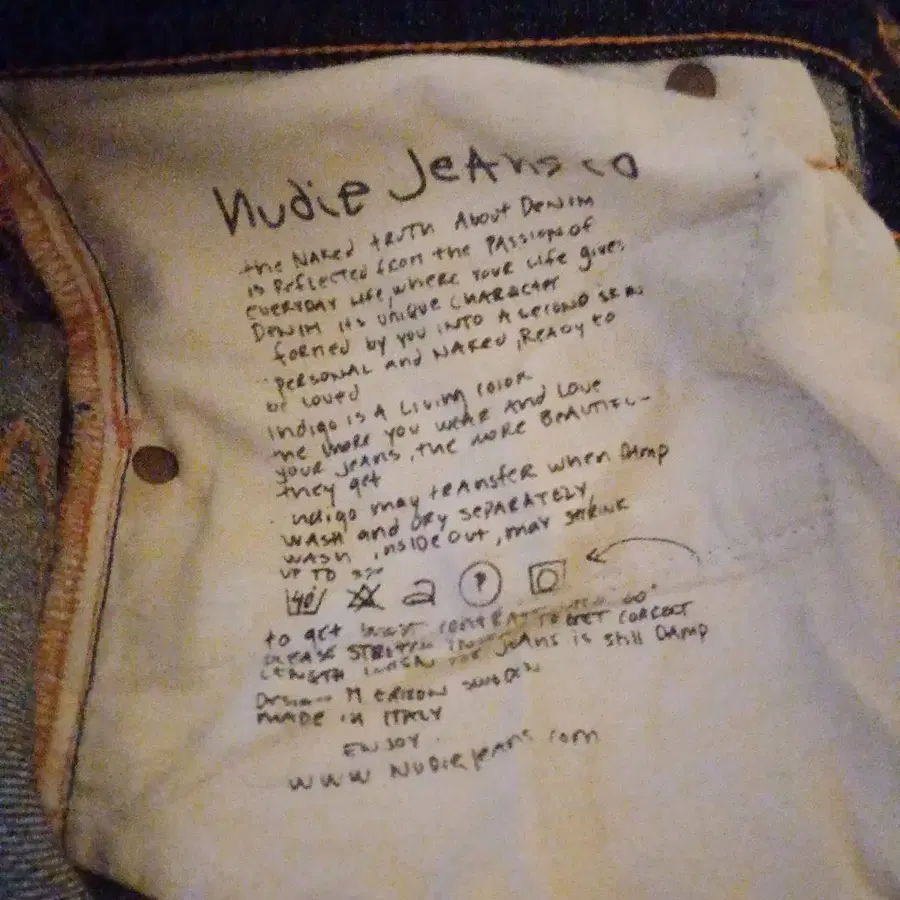 Nudie Jeans co
the NAKed tRUTH About DENIM
is Reflected from the PASSION of
EVERYDAY Life, where YOUR Life gives
DENIM its UNIQUE CHARACTER
formed by you INTO A second skin
PERSONAL and NAKED, READY to
be Loved
Indigo is A Living Color
The more you weAR And Love
YOUR JEANS, the MORE BEAUTIFUL
they get
indigo may tRANsfeR when DAmp
WASH and DRY SEPARATELY,
WASH inside out, may SHRINK
UP TO
40
P
to get
PLEASE STRETCH TO GET CORRECT
LENGTH JEANS is still DAMP
Design M ERIXON SWEDEN
MADE IN ITALY
ENJOY
WWW Nudiejeans.com